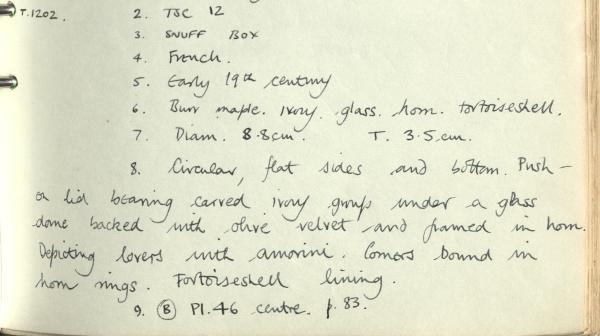 T.1202. 2. TSC 12
3. SNUFF BOX
4. French.
5. Early 19th century
6. Burr maple. ivory. glass. horn. tortoiseshell.
7. Diam. 8.8cm. T. 3.5cm.
8. Circular, flat sides and bottom. Push-
on lid bearing carved ivory group under a glass
dome backed with olive velvet and framed in horn.
Depicting lovers with amorini. Corners bound in
horn rings. Tortoiseshell lining.
9. (B) Pl.46 centre. p.83.